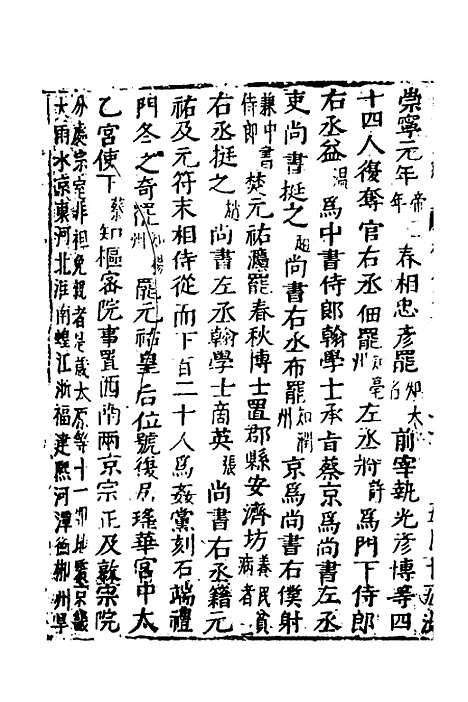 崇寧元年帝年一春相忠彥罷知大名前宰執光彥博等四
十四人復奪官右丞佃罷知亳州左丞將許為門下侍郎
右丞益溫為中書侍郎翰學士承旨蔡京為尚書左丞
吏尚書挺之趙尚書右丞布罷知潤州京為尚書右僕射
兼中書侍郎焚元祐灋罷春秋博士置郡縣安濟坊養民貧病者
右丞挺之趙尚書左丞翰學士商英張尚書右丞籍元
祐及元符末相侍從而下百二十人為姦黨刻石端禮
門冬之奇罷知杭州罷元祐皇后位號復居瑤華宮中太
乙宮使卞蔡知樞密院事置西南兩京宗正及敦宗院
分處宗室非袒免親者是歲太原等十一郡地震京畿
大雨水京東河北淮南蝗江浙福建熙河潭郴州旱